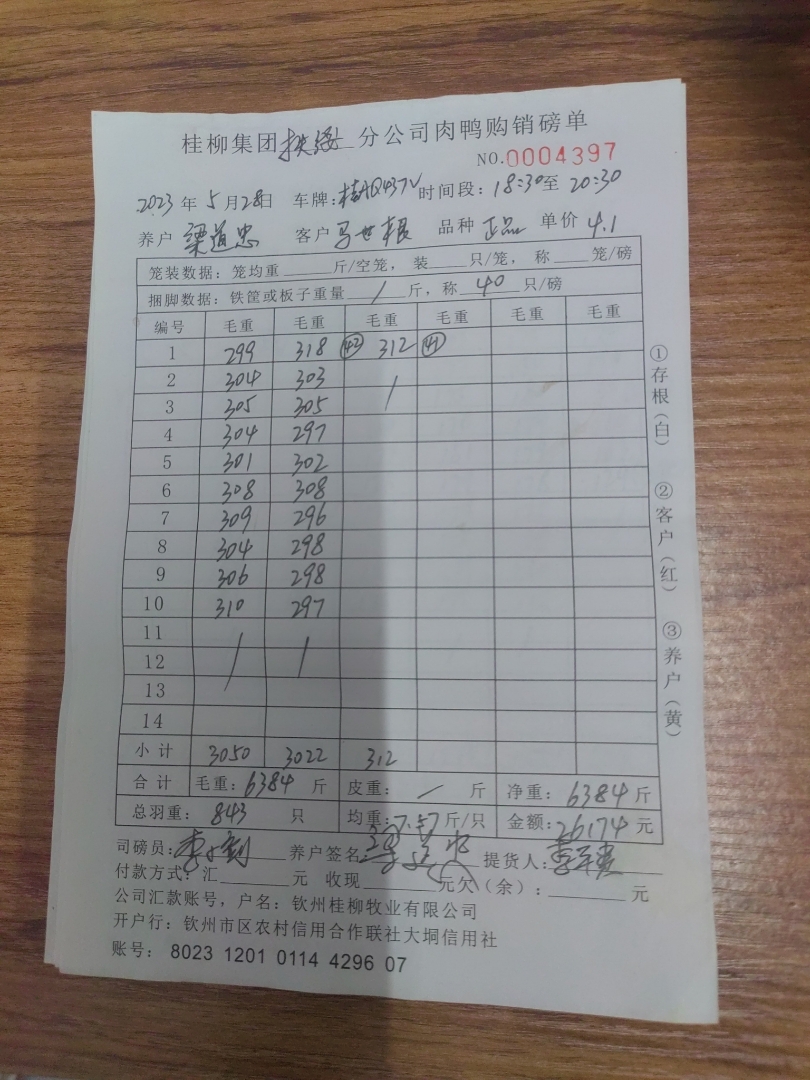 桂柳集团扶绥分公司肉鸭购销磅单
NO.0004397
2023年5月28日 车牌:桂AQ437V 时间段:18:30至20:30
养户 梁道忠 客户 马世根 品种 正品 单价 4.1
笼装数据:笼均重 斤/空笼,装 只/笼,称 笼/磅
捆脚数据:铁筐或板子重量 / 斤,称 40 只/磅
编号 毛重 毛重 毛重 毛重 毛重 毛重
1 299 318 ㊷ 312 ㊶
2 304 303 /
3 305 305
4 304 297
5 301 302
6 308 308
7 309 296
8 304 298
9 306 298
10 310 297
11 / /
12
13
14
小计 3050 3022 312
合计 毛重:6384斤 皮重: / 斤 净重:6384斤
总羽重:843 只 均重:7.57斤/只 金额:26174元
司磅员: 养户签名 梁道忠 提货人:
付款方式:汇 元 收现 元欠(余): 元
公司汇款账号,户名:钦州桂柳牧业有限公司
开户行:钦州市区农村信用合作联社大垌信用社
账号:8023 1201 0114 4296 07
①存根(白) ②客户(红) ③养户(黄)